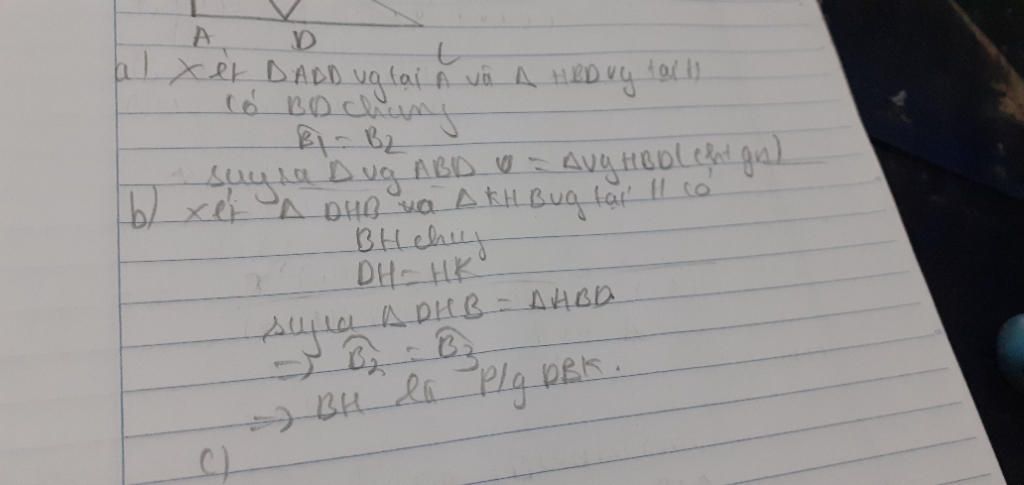 A D C
a) xét Δ ABD vg tại A và Δ HBD vg tại H
có BD chung
B1 = B2
suy ra Δ vg ABD = Δ vg HBD (ch+gn)
b) xét Δ DHB và Δ KHB vg tại H có
BH chug
DH = HK
suy ra Δ DHB = Δ HBD
=> B2 = B3
=> BH là p/g DBK.
c)